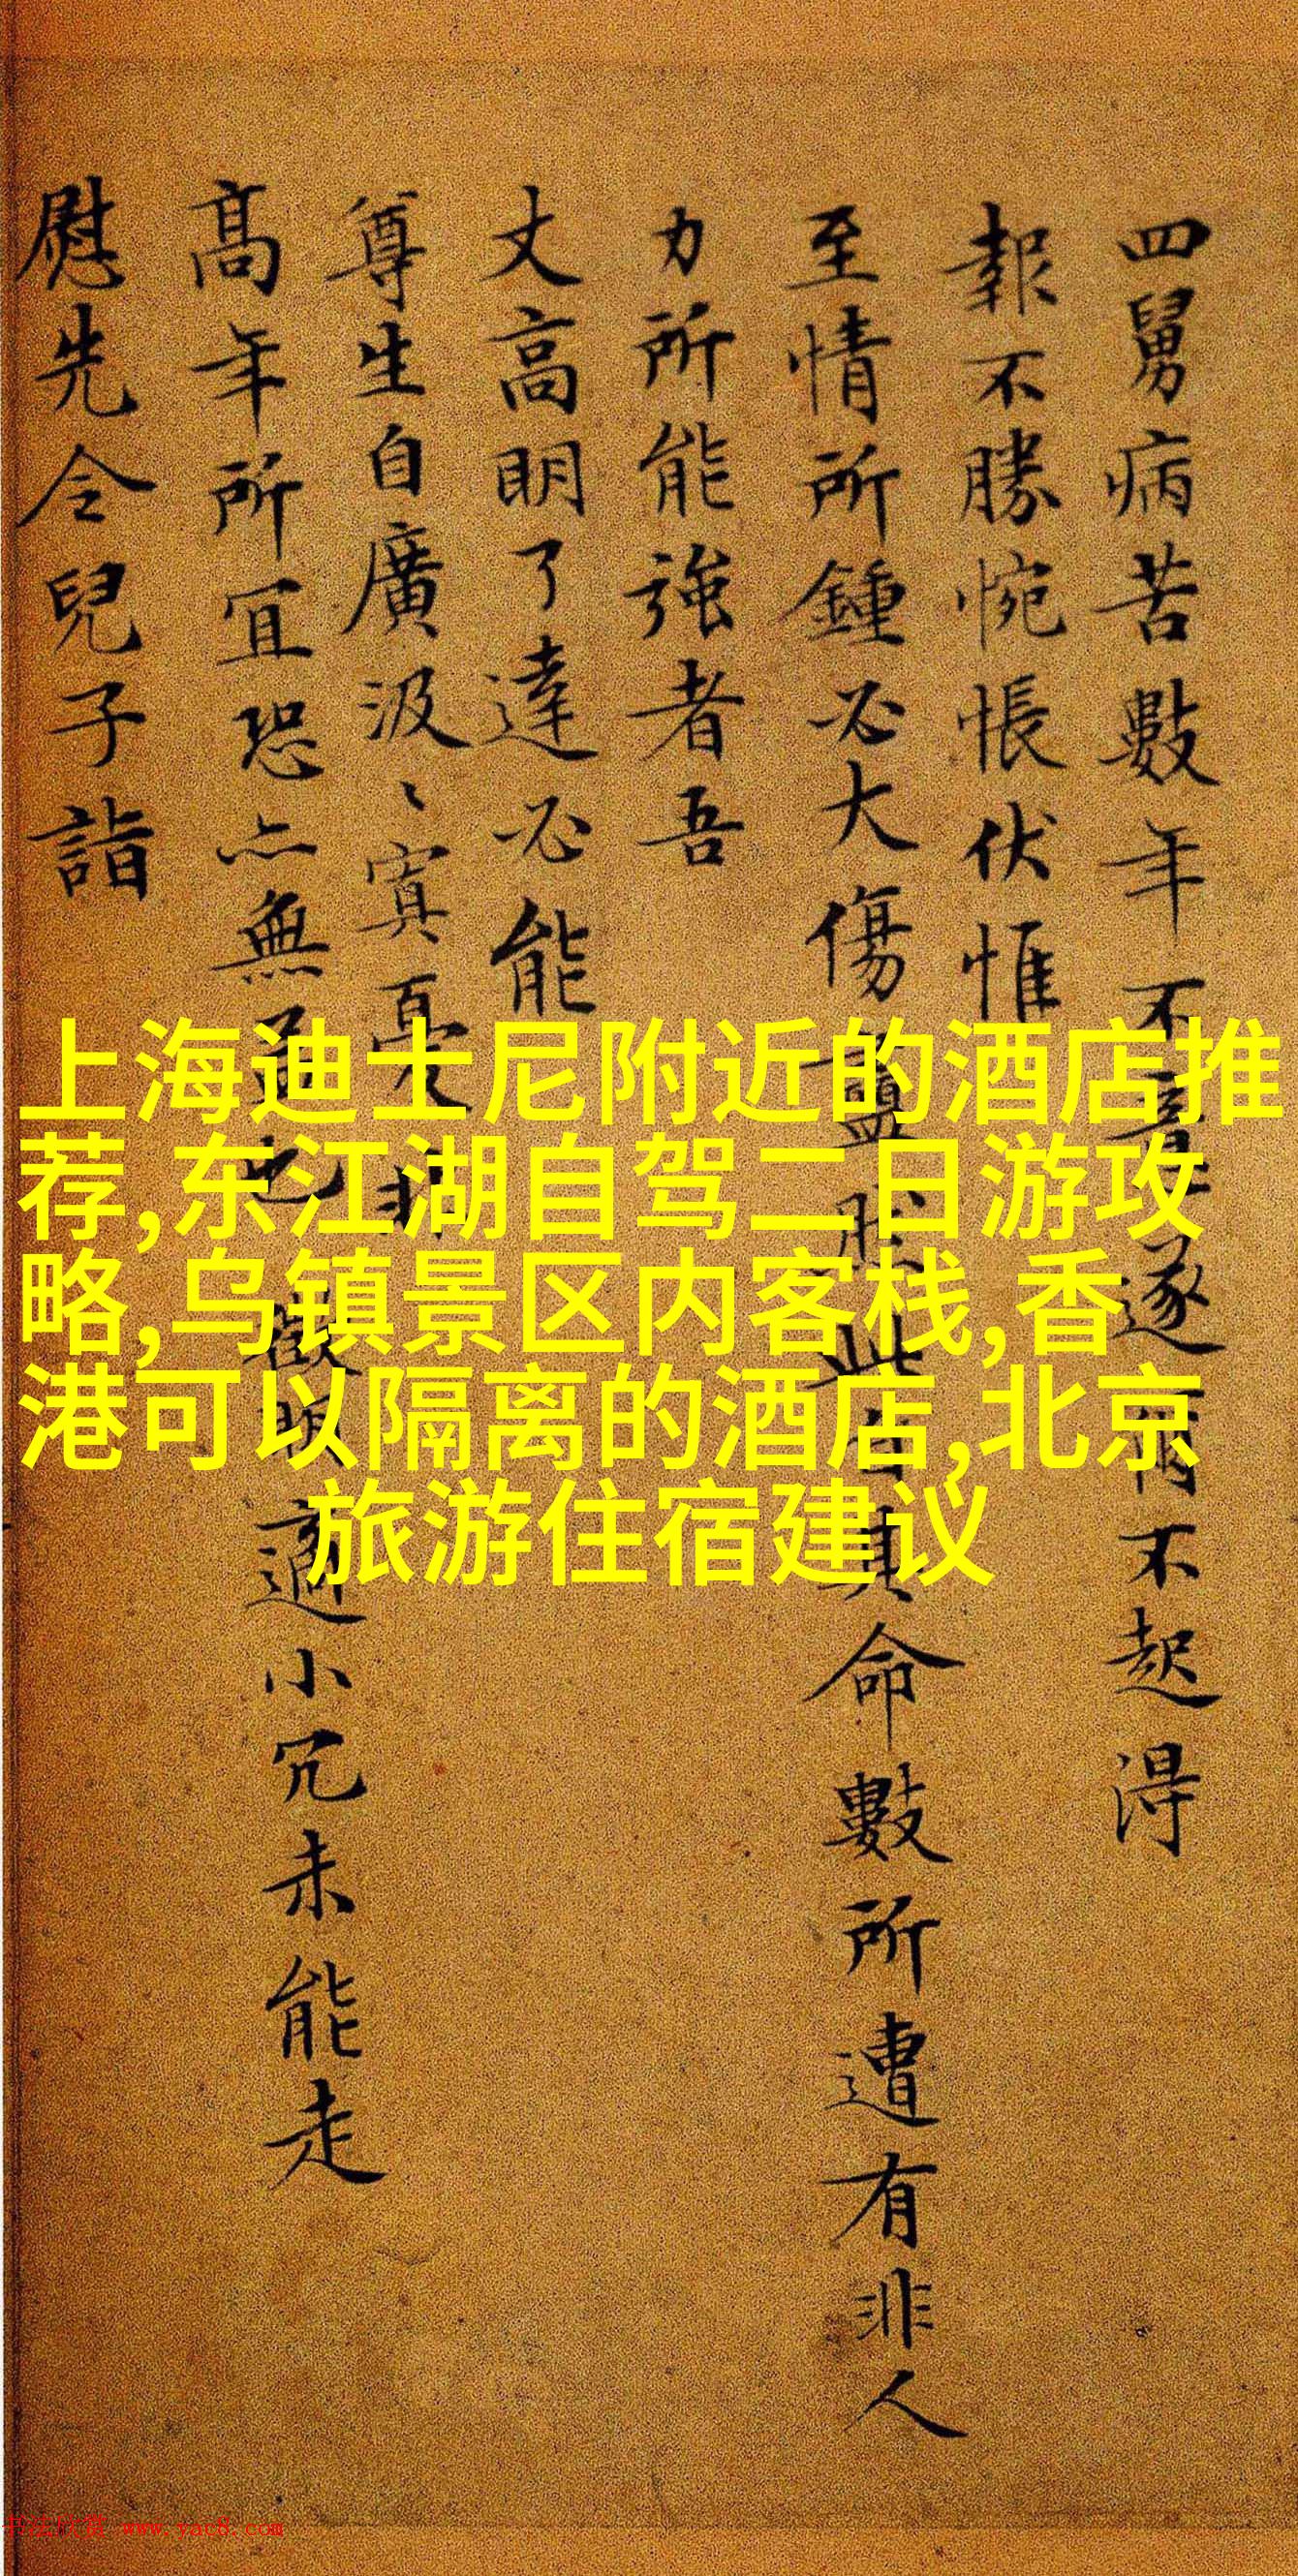 四舅病苦數年不
遂
不起得
報不勝惋悵伏惟
至情所鍾必大傷
命數所遭有非人
力所能強者吾
丈高明了達必能
尊生自廣汲〻寘憂
高年所宜恐亦無
適小冗未能走
慰先令兒子詣
上海迪士尼附近的酒店推
荐,东江湖自驾二日游攻
略,乌镇景区内客栈,香
港可以隔离的酒店,北京
旅游住宿建议
书法欣赏 www.yac8.com